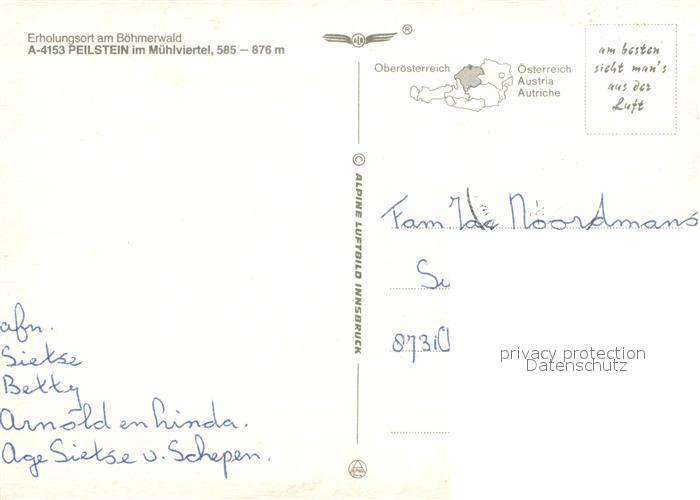 Erholungsort am Böhmerwald
A-4153 PEILSTEIN im Mühlviertel, 585 – 876 m
®
Oberösterreich
Österreich
Austria
Autriche
am besten
sieht man's
aus der
Luft
© ALPINE LUFTBILD INNSBRUCK
Fam Noordmans
8731
privacy protection
Datenschutz
afn.
Sietse
Betty
Arnold en hinda.
Age Sietse v. Schepen.